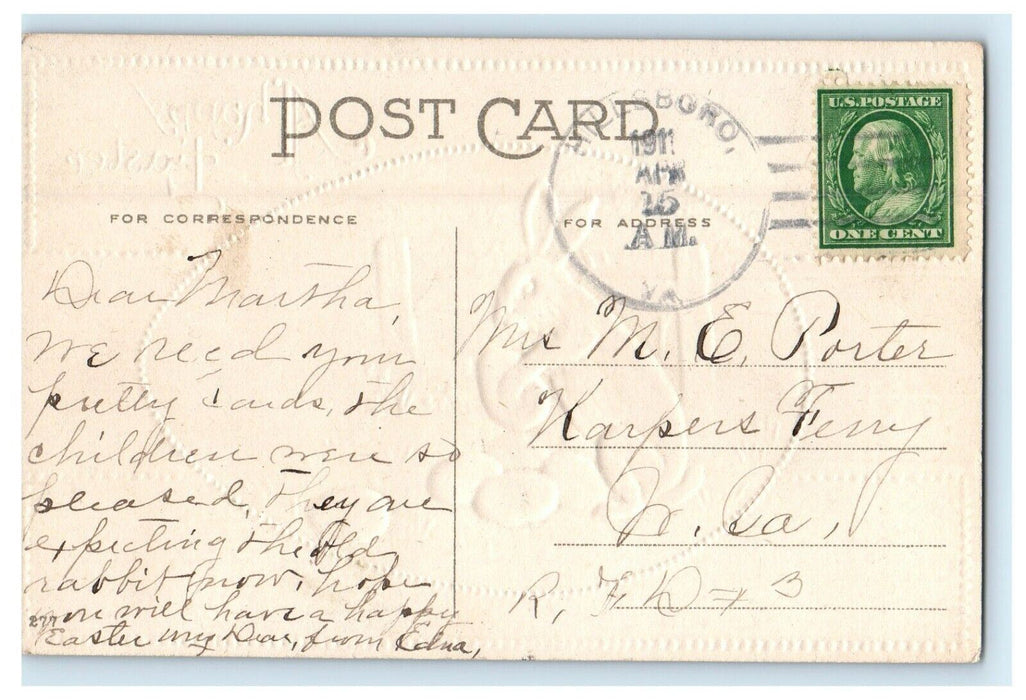 POST CARD
BORO,
1911
APR
15
A.M.
VA.
U.S. POSTAGE
ONE CENT
FOR CORRESPONDENCE
FOR ADDRESS
Dear Martha,
We rec'd your
pretty cards, the
children were so
pleased, they are
expecting the old
rabbit now, hope
you will have a happy
Easter my Dear, from Edna,
277
Mrs M. E. Porter
Harpers Ferry
W. Va,
R, F D # 3
A Happy
Easter